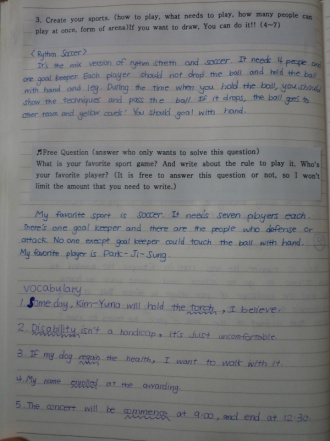 3. Create your sports. (how to play, what needs to play, how many people can
play at once, form of arena)If you want to draw, You can do it!! (4~7)
<Rythm Soccer>
It's the mix version of rythm streth and soccer. It needs 4 people and
one goal keeper. Each player should not drop the ball and hold the ball
with hand and leg. During the time when you hold the ball, you should
show the techniques and pass the ball. If it drops, the ball goes to
other team and yellow card! You should goal with hand.
♬Free Question (answer who only wants to solve this question)
What is your favorite sport game? And write about the rule to play it. Who's
your favorite player? (It is free to answer this question or not, so I won't
limit the amount that you need to write.)
My favorite sport is soccer. It needs seven players each.
There's one goal keeper and there are the people who defense or
attack. No one except goal keeper could touch the ball with hand.
My favorite player is Park-Ji-Sung.
vocabulary
1. Someday, Kim-Yuna will hold the torch, I believe.
2. Disability isn't a handicap, it's just uncomfortable.
3. If my dog regain the health, I want to walk with it.
4. My name enrolled at the awarding.
5. The concert will be commence at 9:00, and end at 12:30.